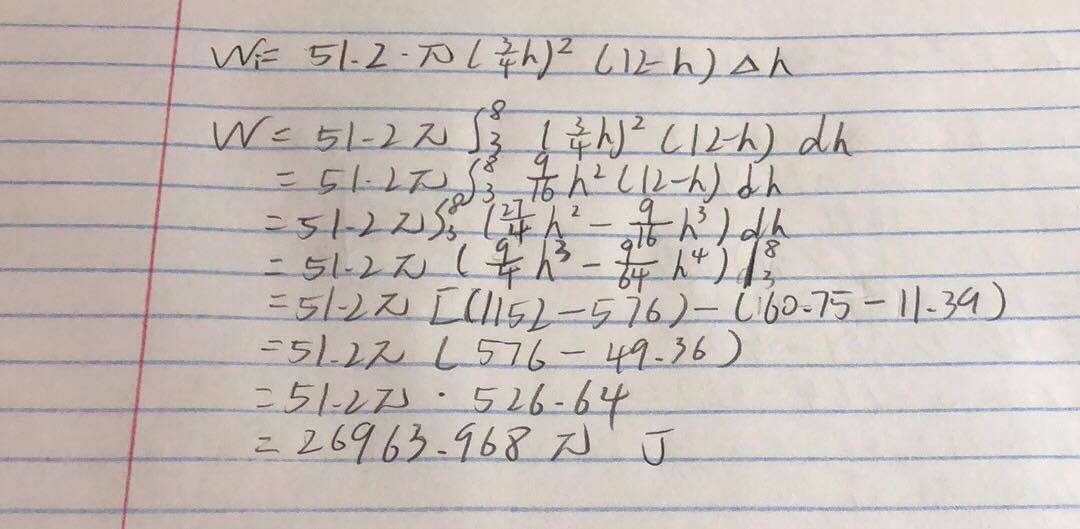 Wi= 51.2·π(3/4h)² (12-h) Δh
W = 51.2π ∫₃⁸ (3/4h)² (12-h) dh
= 51.2π ∫₃⁸ 9/16 h² (12-h) dh
= 51.2π ∫₃⁸ (27/4 h² - 9/16 h³) dh
= 51.2π (9/4 h³ - 9/64 h⁴) |₃⁸
= 51.2π [(1152-576)-(60.75-11.39)
= 51.2π (576-49.36)
= 51.2π · 526.64
= 26963.968 π J